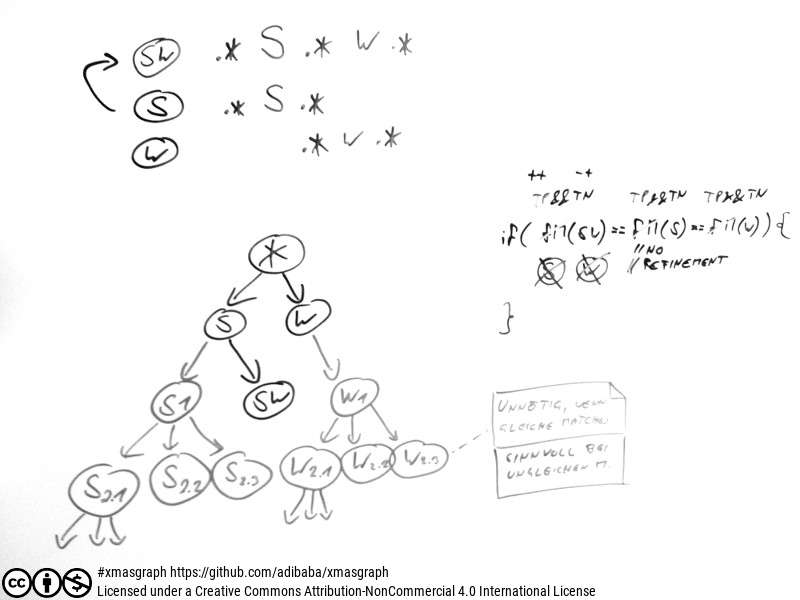 SW .* S .* W .*
S .* S .*
W .* W .*
++ -+
TP&&TN TP&&TN TP&&TN
if( fil(SW) == fil(S) == fil(W)) {
S W // NO
// REFINEMENT
}
*
S W
S1 SW W1
UNNÖTIG, WENN
GLEICHE MATCHEN
SINNVOLL BEI
UNGLEICHEN M.
S2.1 S2.2 S2.3 W2.1 W2.2 W2.3
#xmasgraph https://github.com/adibaba/xmasgraph
Licensed under a Creative Commons Attribution-NonCommercial 4.0 International License